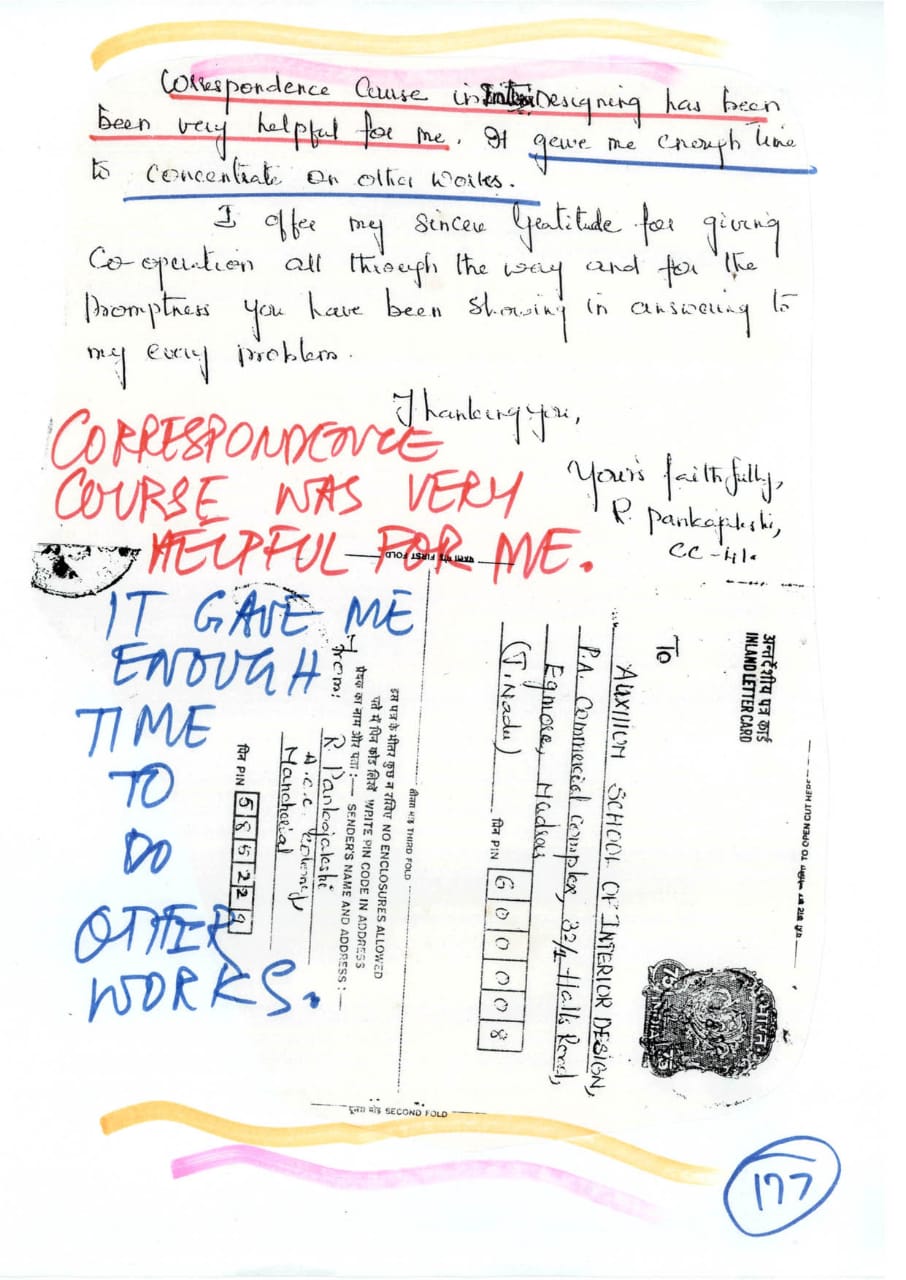 Correspondence Cause in Inter Designing has been
been very helpful for me. It gave me enough time
to concentrate on other works.
I offer my sincere gratitude for giving
Co-operation all through the way and for the
promptness you have been showing in answering to
my every problem.
Thanking you,
Yours faithfully,
R. Pankajakshi,
CC-41.
CORRESPONDENCE
COURSE WAS VERY
HELPFUL FOR ME.
IT GAVE ME
ENOUGH
TIME
TO
DO
OTHER
WORKS.
पहला मोड़ FIRST FOLD
अन्तर्देशीय पत्र कार्ड
INLAND LETTER CARD
To
AUXILIUM SCHOOL OF INTERIOR DESIGN,
P.A. Commercial complex, 32/1-Halls Road,
Egmore, Madras
(T. Nadu)
पिन PIN 600008
75 75
TO OPEN CUT HERE
तीसरा मोड़ THIRD FOLD
इस पत्र के भीतर कुछ न रखिए NO ENCLOSURES ALLOWED
पते में पिन कोड लिखें WRITE PIN CODE IN ADDRESS
प्रेषक का नाम और पता :— SENDER'S NAME AND ADDRESS :—
From:
R. Pankajakshi
A.C.C. Colony
Mancherial
पिन PIN 585229
दूसरा मोड़ SECOND FOLD
177